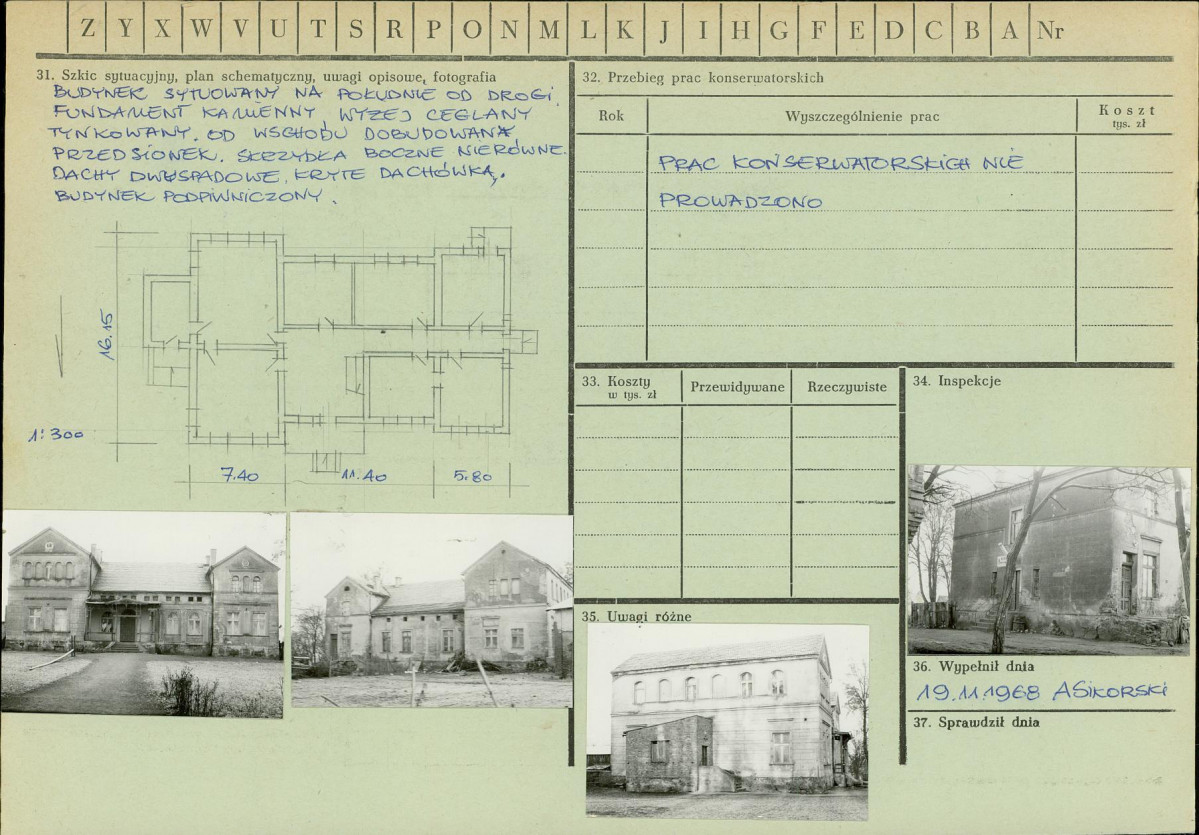 Z Y X W V U T S R P O N M L K J I H G F E D C B A Nr
31. Szkic sytuacyjny, plan schematyczny, uwagi opisowe, fotografia
BUDYNEK SYTUOWANY NA POŁUDNIE OD DROGI.
FUNDAMENT KAMIENNY, WYŻEJ CEGLANY
TYNKOWANY. OD WSCHODU DOBUDOWANA
PRZEDSIONEK. SKRZYDŁA BOCZNE NIERÓWNE.
DACHY DWUSPADOWE, KRYTE DACHÓWKĄ.
BUDYNEK PODPIWNICZONY.
16.15
1:300
7.40 11.40 5.80
32. Przebieg prac konserwatorskich
Rok Wyszczególnienie prac Koszt
tys. zł
PRAC KONSERWATORSKICH NIE
PROWADZONO
33. Koszty Przewidywane Rzeczywiste
w tys. zł
34. Inspekcje
35. Uwagi różne
36. Wypełnił dnia
19.11.1968 ASIKORSKI
37. Sprawdził dnia